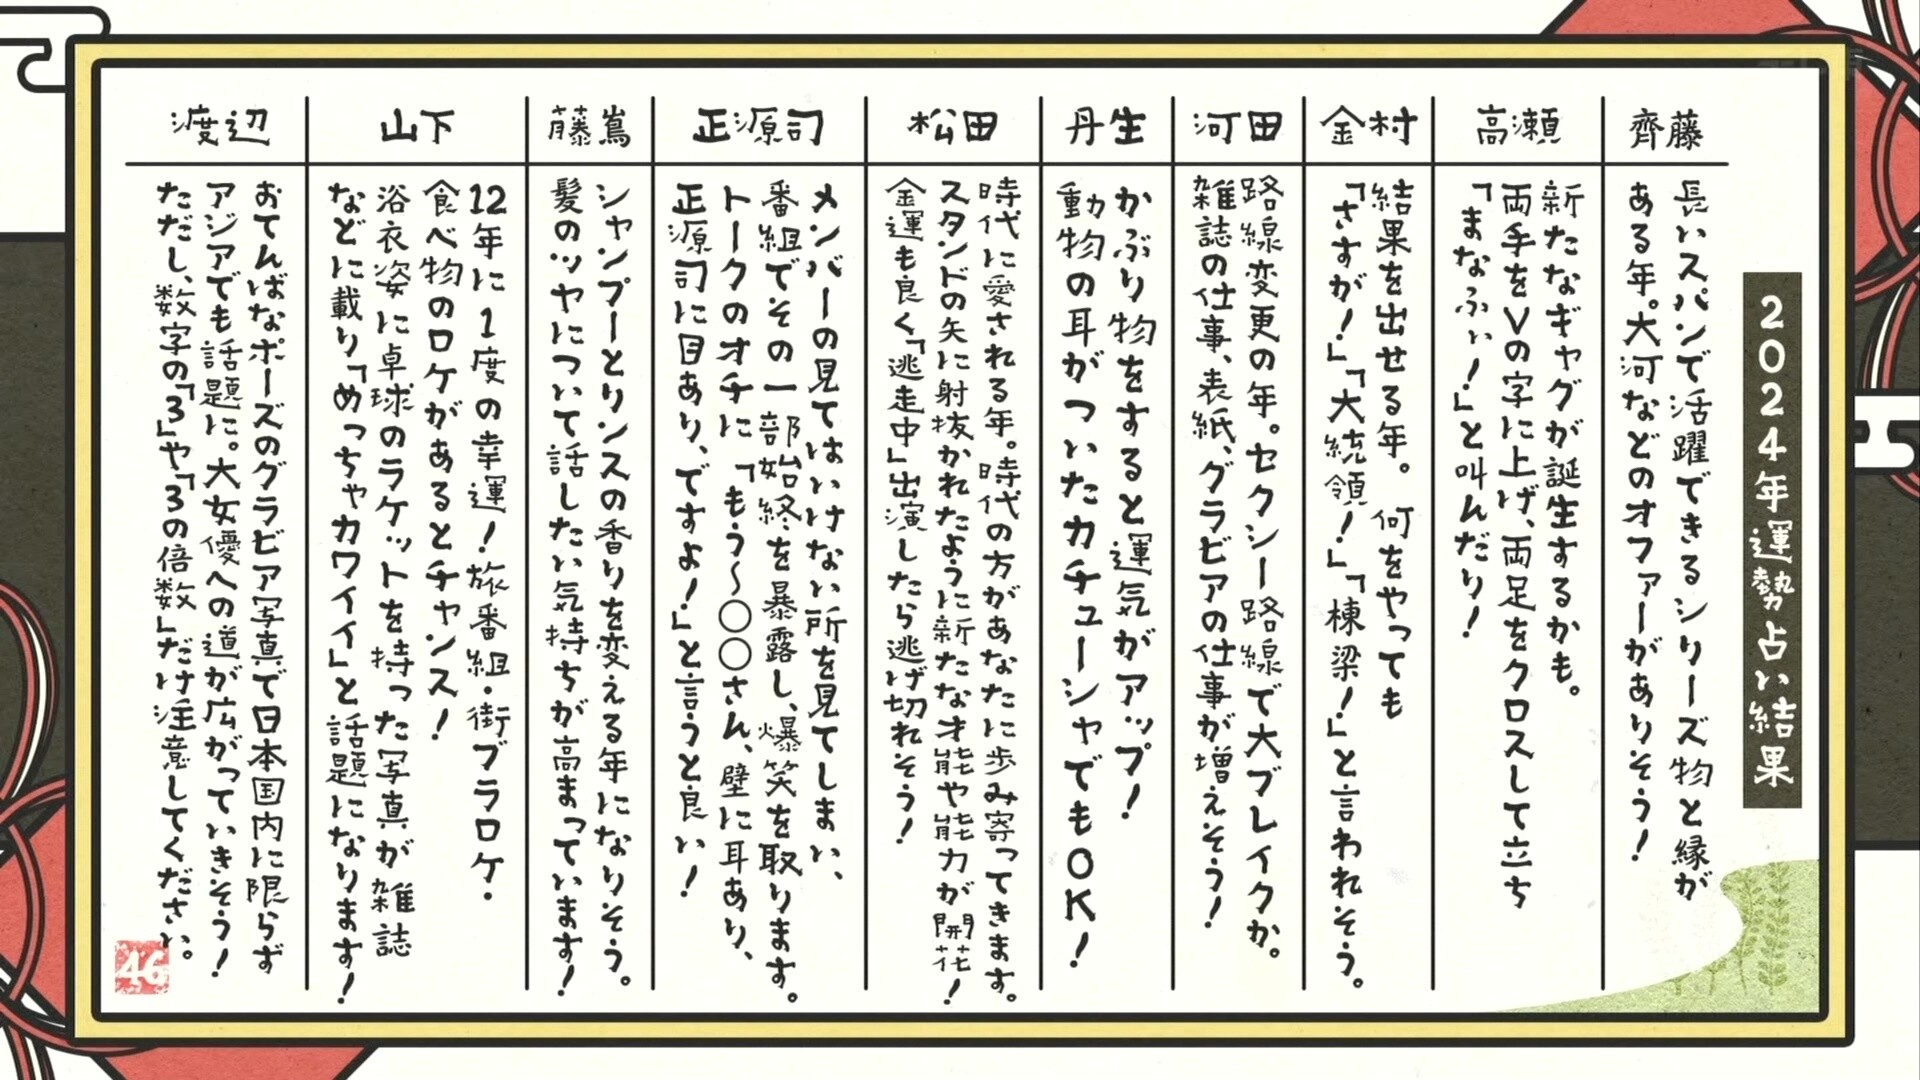 2024年運勢占い結果
齊藤
長いスパンで活躍できるシリーズ物と縁が
ある年。大河などのオファーがありそう！
高瀬
新たなギャグが誕生するかも。
両手をVの字に上げ、両足をクロスして立ち
「まなふぃ！」と叫んだり！
金村
結果を出せる年。何をやっても
「さすが！」「大統領！」「棟梁！」と言われそう。
河田
路線変更の年。セクシー路線で大ブレイクか。
雑誌の仕事、表紙、グラビアの仕事が増えそう！
丹生
かぶり物をすると運気がアップ！
動物の耳がついたカチューシャでもOK！
松田
時代に愛される年。時代の方があなたに歩み寄ってきます。
スタンドの矢に射抜かれたように新たな才能や能力が開花！
金運も良く「逃走中」出演したら逃げ切れそう！
正源司
メンバーの見てはいけない所を見てしまい、
番組でその一部始終を暴露し、爆笑を取ります。
トークのオチに「もう〜〇〇さん、壁に耳あり、
正源司に目あり、ですよ！」と言うと良い！
藤嶌
シャンプーとリンスの香りを変える年になりそう。
髪のツヤについて話したい気持ちが高まっています！
山下
12年に1度の幸運！旅番組・街ブラロケ・
食べ物のロケがあるとチャンス！
浴衣姿に卓球のラケットを持った写真が雑誌
などに載り「めっちゃカワイイ」と話題になります！
渡辺
おてんばなポーズのグラビア写真で日本国内に限らず
アジアでも話題に。大女優への道が広がっていきそう！
ただし、数字の「3」や「3の倍数」だけ注意してください。
46